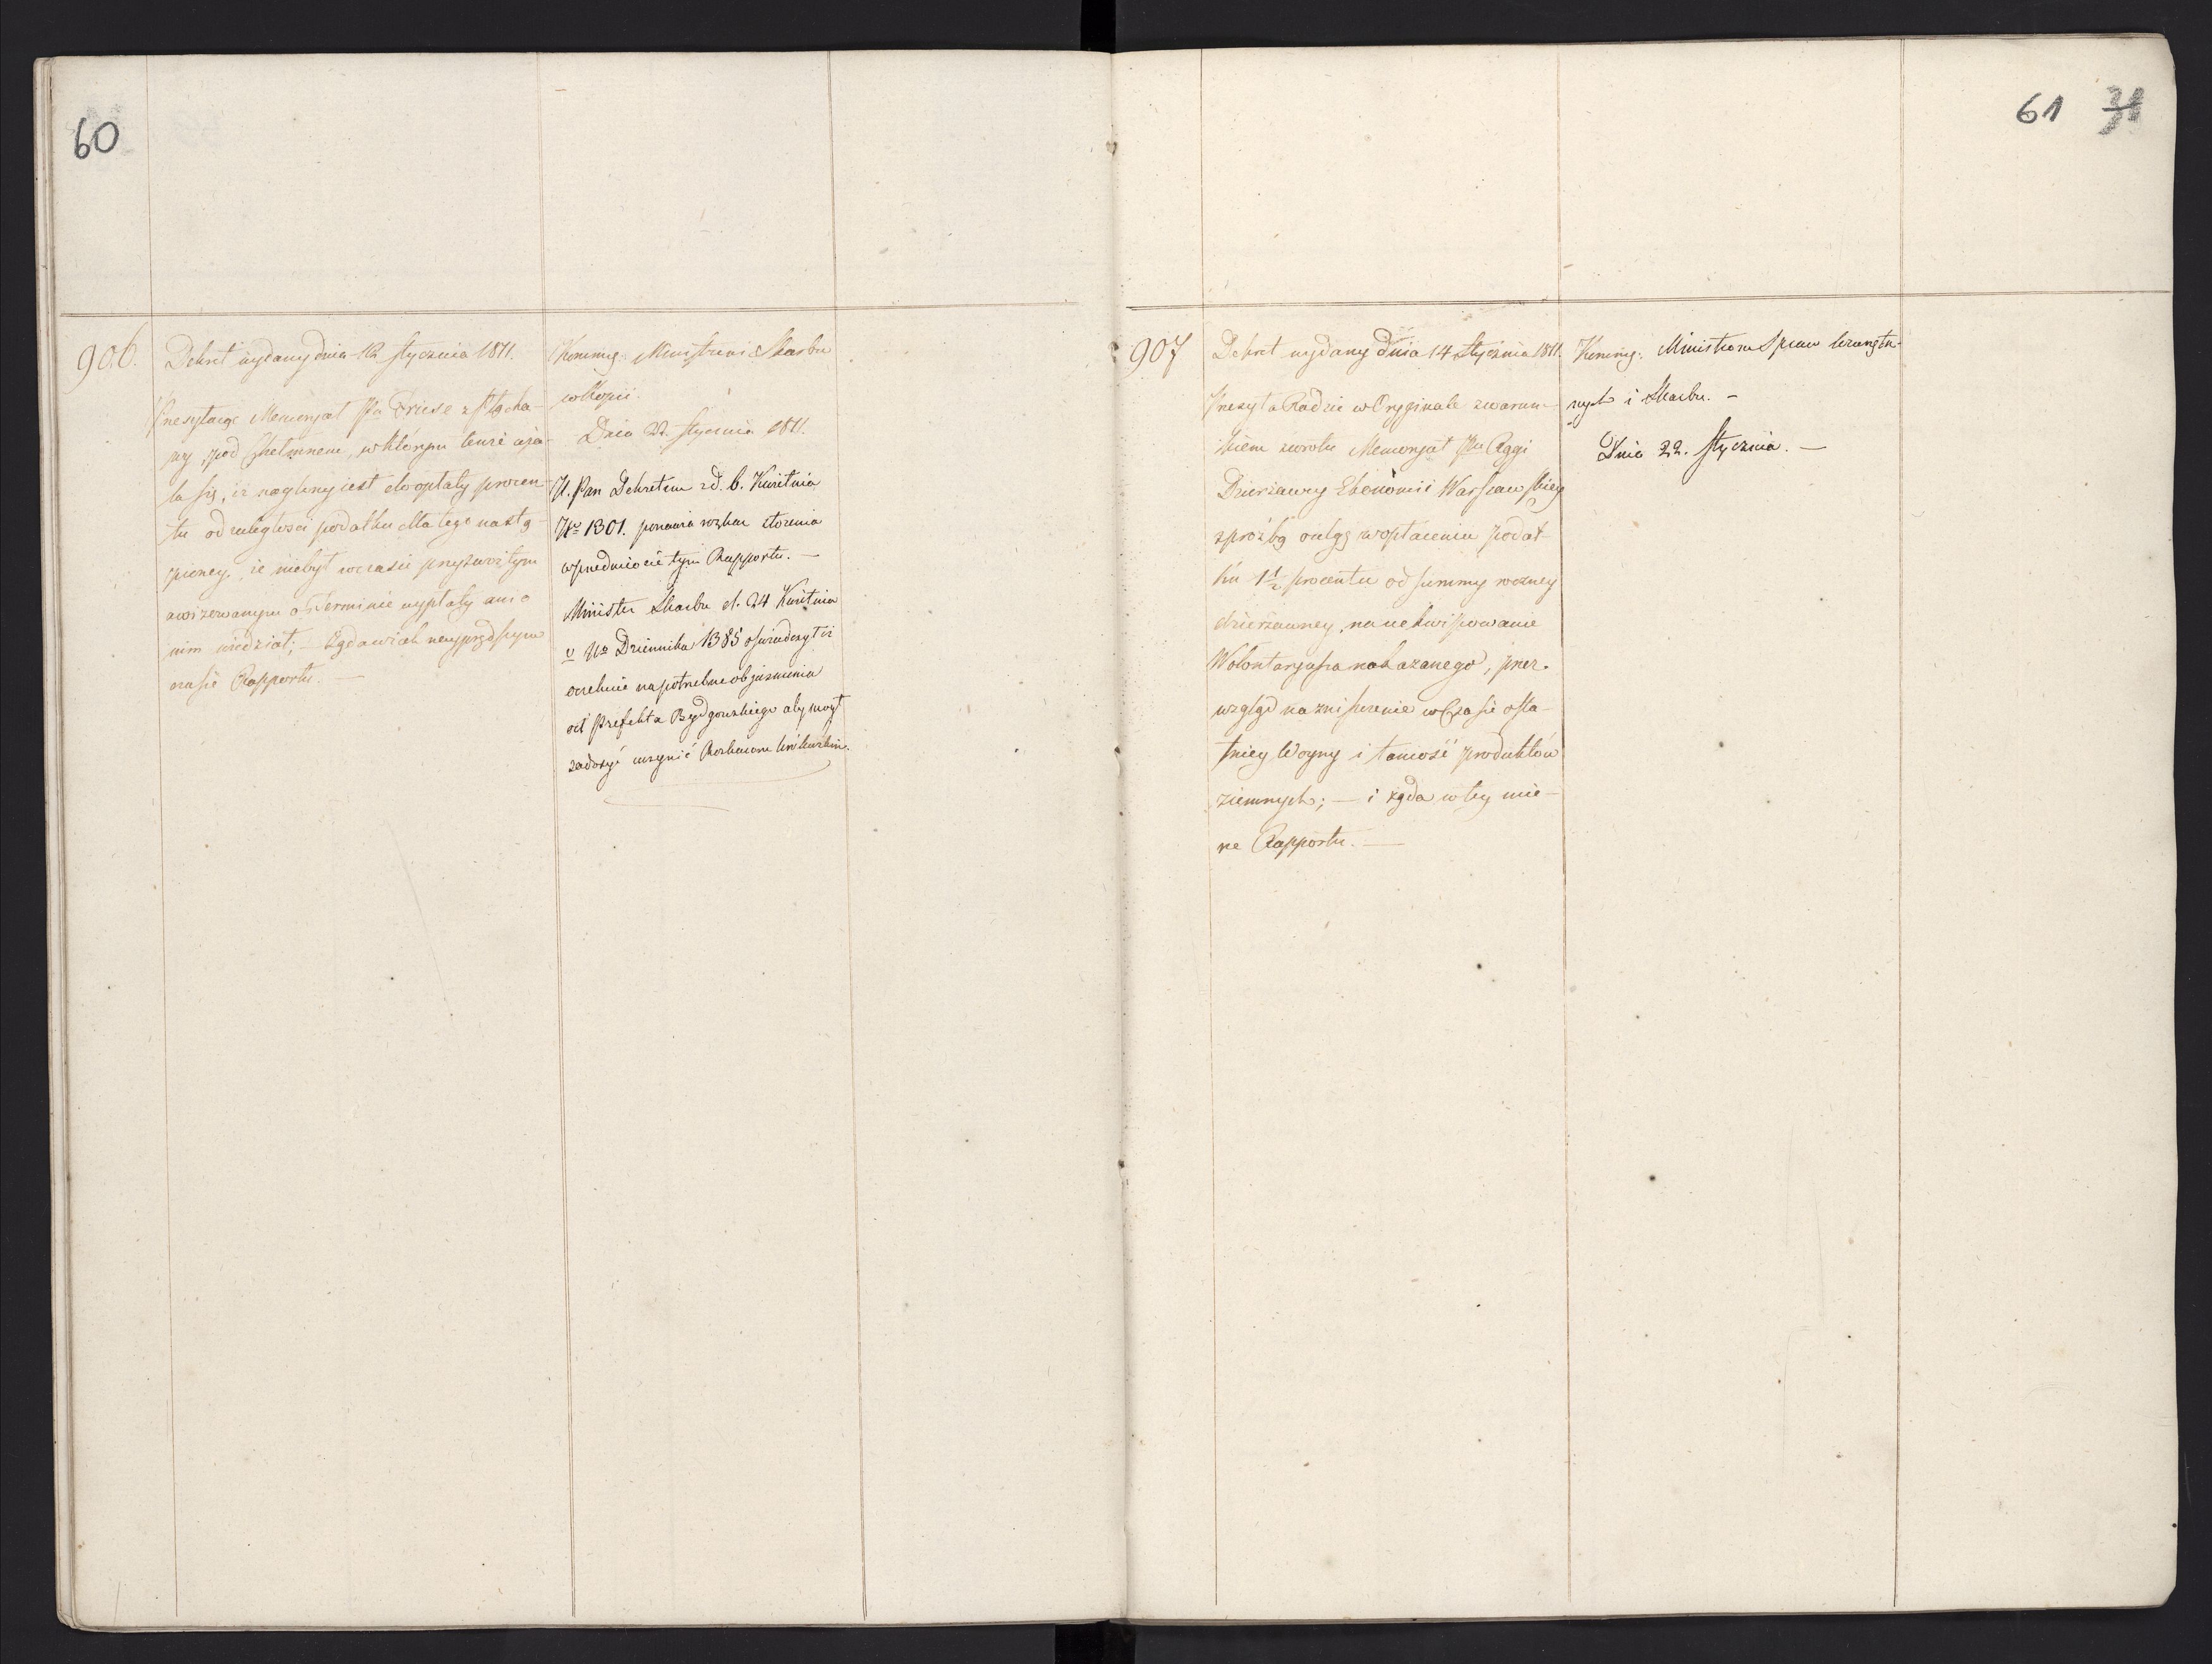 60
906.
Dekret wydany dnia 12 stycznia 1811.
Przesyłaiąc Memoryał Pa Friese z
ny pod Chełmnem, w którym tenże uża-
la się, iż naglony iest do opłaty procen-
tu od zaległości podatku dla tego nastą-
pioney, że niebył w czasie przyzwoitym
awizowanym o Terminie wypłaty ani o
nim wiedział; — Żąda w iak nayprędszym
czasie Rapportu. —
Kommg. Ministrowi Skarbu
w Kopii.
Dnia 22. stycznia 1811.
N. Pan Dekretem z d. 6. Kwietnia
No 1301. ponawia rozkaz złożenia
w przedmiocie tym Rapportu. —
Minister Skarbu d. 24 Kwietnia
No Dziennika 1385 oświadczył iż
oczekuie na potrzebne obiaśnienia
od Prefekta Bydgoskiego aby mógł
zadosyć uczynić Rozkazom królewskim.
61 31
907
Dekret wydany dnia 14 Stycznia 1811.
Przesyła Radzie w Oryginale z warun-
kiem zwrotu Memoryał Pa Aggi
Dzierżawcy Ekonomii Warszawskiey
z prośbą o ulgę w opłaceniu podat-
ku 1 1/2 procentu od summy roczney
dzierżawney, na uekwipowanie
Wolontaryusza nakazanego, przez
wzgląd na zniszczenie w Czasie osta-
tniey Woyny i taniość produktów
ziemnych; — i żąda w tey mie-
rze Rapportu. —
Kommg. Ministrom Spraw Wewnętrz-
nych i Skarbu. —
Dnia 22. Stycznia. —